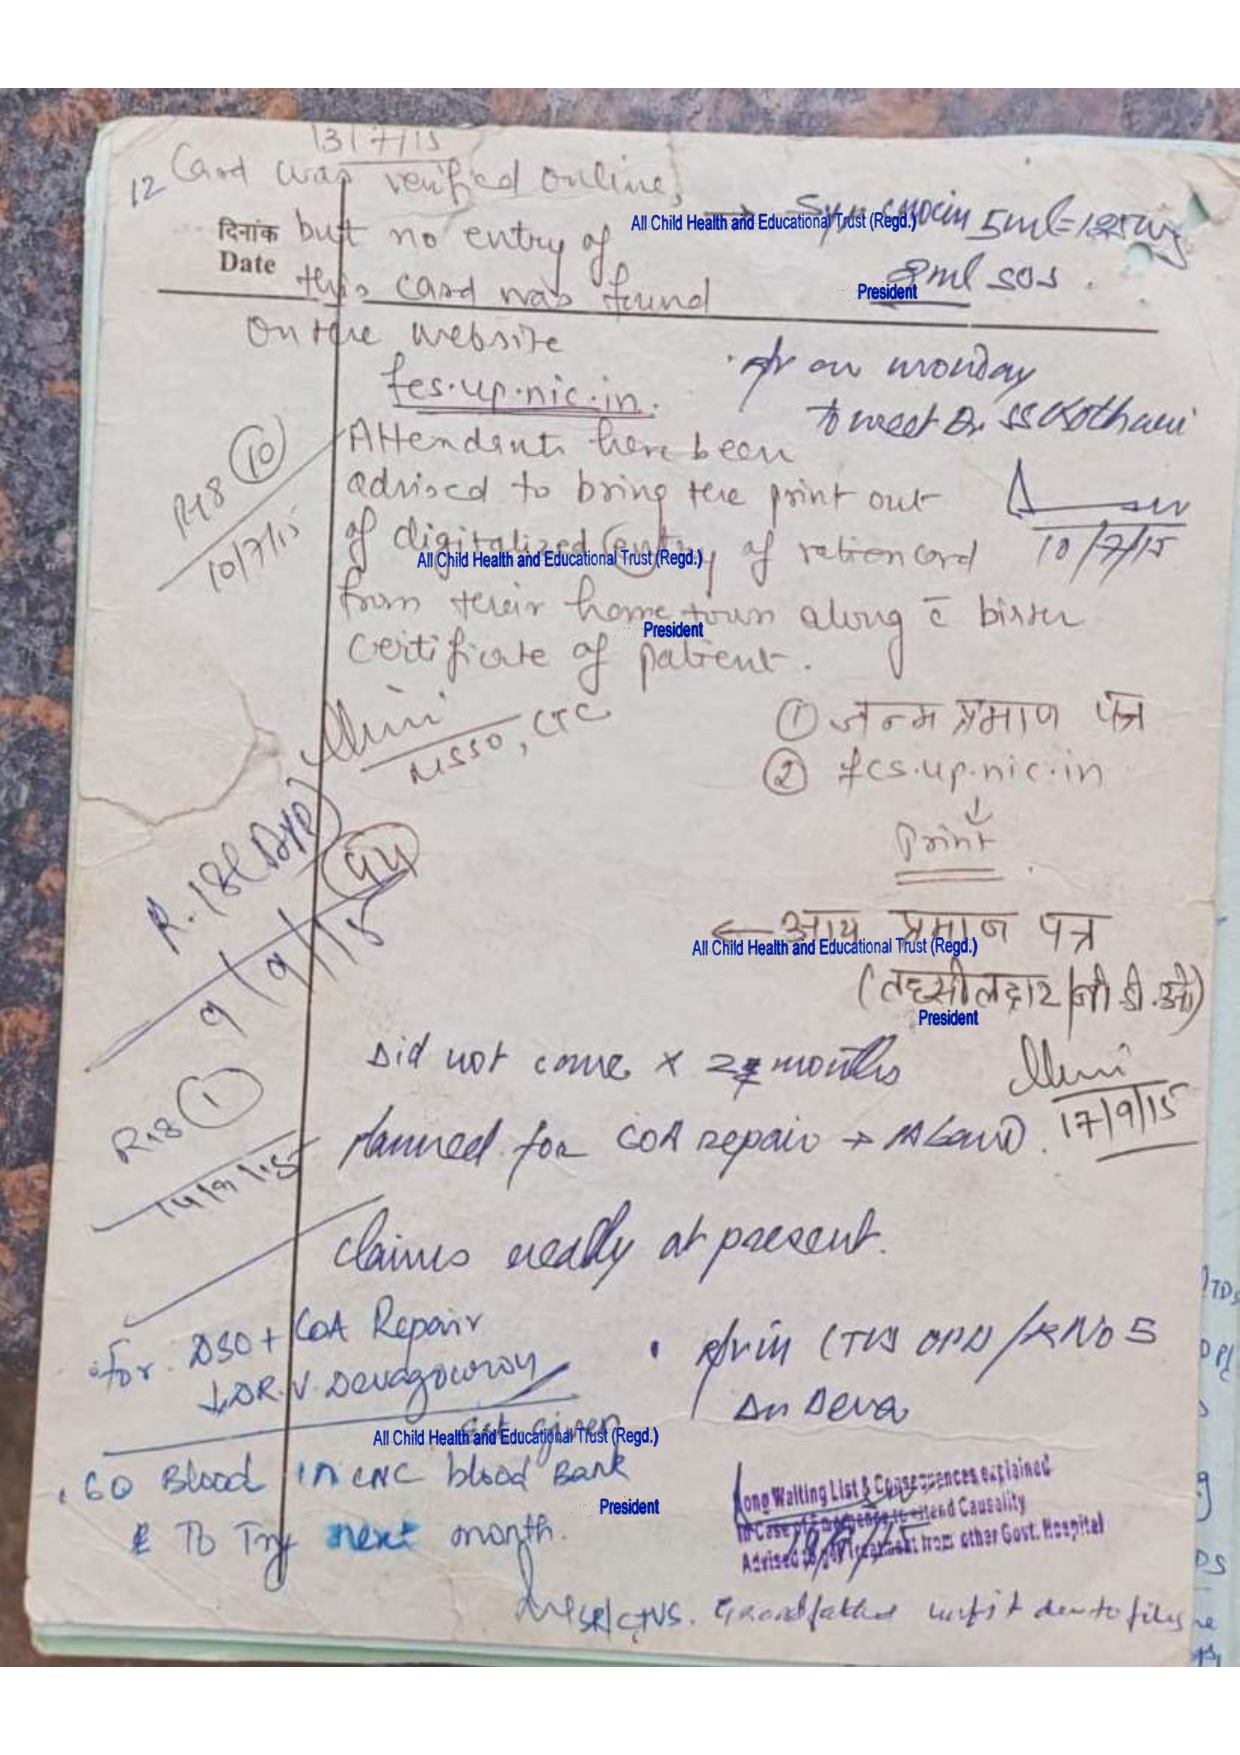 13/7/15
12 Card was verified online,
दिनांक but no entry of
Date this card was found
on the website
fcs.up.nic.in.
Syp. 5ml=125mg
8ml SOS.
on monday
to meet Dr. SS Kothari
10/7/15
R18 (10)
10/7/15
Attendants have been
advised to bring the print out
of digitalized entry of rationcard
from their home town along c̄ birth
certificate of patient.
MSSO, CTC
① जन्म प्रमाण पत्र
② fcs.up.nic.in
↓
Print
← आय प्रमाण पत्र
(तहसीलदार/बी.डी.ओ)
17/9/15
R.18
9/9/15
Did not come × 2 months
R18 (1)
14/9/15
planned for COA repair →
claims ready at present.
For DSO + COA Repair
↓ DR. V. Devagourou
• in CTVS OPD/RNo 5
Dr Deva
not given
GO Blood in CNC blood Bank
& To Try next month.
SR/CTVS. Grandfather unfit due to
Long Waiting List & Consequences explained
In Case of Emergency to attend Causality
Advised to get Treatment from other Govt. Hospital
All Child Health and Educational Trust (Regd.)
President
All Child Health and Educational Trust (Regd.)
President
All Child Health and Educational Trust (Regd.)
President
All Child Health and Educational Trust (Regd.)
President